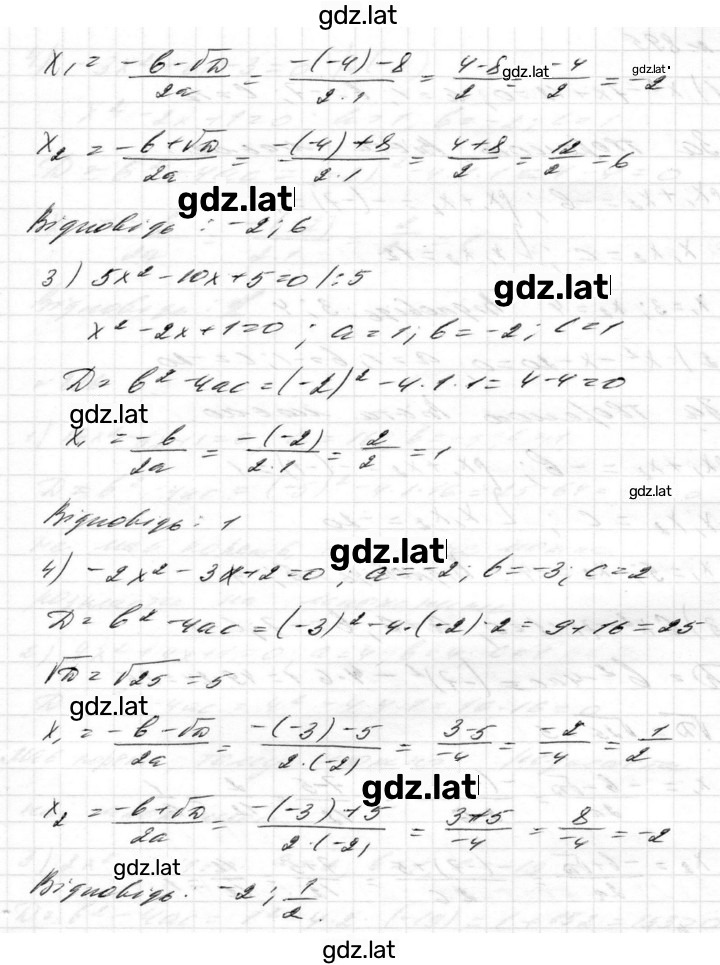 gdz.lat
x₁ = (-b-√D)/2a = (-(-4)-8)/(2·1) = (4-8)/2 = -4/2 = -2
gdz.lat gdz.lat
x₂ = (-b+√D)/2a = (-(-4)+8)/(2·1) = (4+8)/2 = 12/2 = 6
gdz.lat
Відповідь: -2; 6
3) 5x²-10x+5=0 /:5
gdz.lat
x²-2x+1=0; a=1; b=-2; c=1
D = b²-4ac = (-2)²-4·1·1 = 4-4=0
gdz.lat
x₁ = -b/2a = -(-2)/(2·1) = 2/2 = 1
gdz.lat
Відповідь: 1
gdz.lat
4) -2x²-3x+2=0; a=-2; b=-3; c=2
D = b²-4ac = (-3)²-4·(-2)·2 = 9+16=25
√D = √25 = 5
gdz.lat
x₁ = (-b-√D)/2a = (-(-3)-5)/(2·(-2)) = (3-5)/-4 = -2/-4 = 1/2
gdz.lat
x₂ = (-b+√D)/2a = (-(-3)+5)/(2·(-2)) = (3+5)/-4 = 8/-4 = -2
gdz.lat
Відповідь: -2; 1/2.
gdz.lat